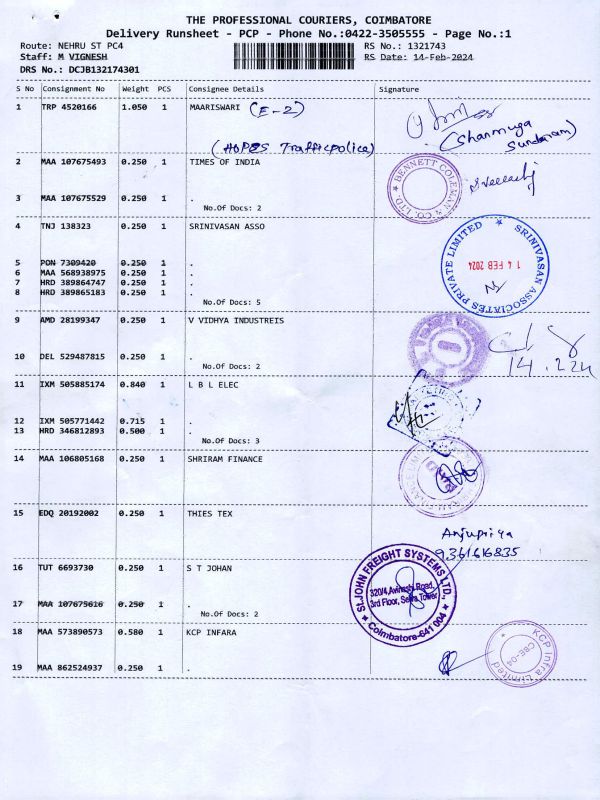 THE PROFESSIONAL COURIERS, COIMBATORE
Delivery Runsheet - PCP - Phone No.:0422-3505555 - Page No.:1
Route: NEHRU ST PC4 RS No.: 1321743
Staff: M VIGNESH RS Date: 14-Feb-2024
DRS No.: DCJB132174301
S No Consignment No Weight PCS Consignee Details Signature
1 TRP 4520166 1.050 1 MAARISWARI (E-2)
(HOPES Traffic police) (Shanmuga Sundaram)
2 MAA 107675493 0.250 1 TIMES OF INDIA
BENNETT COLEMAN & CO. LTD.
3 MAA 107675529 0.250 1 .
No.Of Docs: 2
4 TNJ 138323 0.250 1 SRINIVASAN ASSO
SRINIVASAN ASSOCIATES PRIVATE LIMITED
14 FEB 2024
5 PON 7309420 0.250 1 .
6 MAA 568938975 0.250 1 .
7 HRD 389864747 0.250 1 .
8 HRD 389865183 0.250 1 .
No.Of Docs: 5
9 AMD 28199347 0.250 1 V VIDHYA INDUSTREIS
14.224
10 DEL 529487815 0.250 1 .
No.Of Docs: 2
11 IXM 505885174 0.840 1 L B L ELEC
12 IXM 505771442 0.715 1 .
13 HRD 346812893 0.500 1 .
No.Of Docs: 3
14 MAA 106805168 0.250 1 SHRIRAM FINANCE
15 EDQ 20192002 0.250 1 THIES TEX
Anjupriya
9361616835
16 TUT 6693730 0.250 1 S T JOHAN
ST.JOHN FREIGHT SYSTEMS LTD.
320/4, Avinashi Road,
3rd Floor, Selva Tower
Coimbatore-641 004
17 MAA 107675616 0.250 1 .
No.Of Docs: 2
18 MAA 573890573 0.580 1 KCP INFARA
KCP Infra Limited
CBE-04
19 MAA 862524937 0.250 1 .